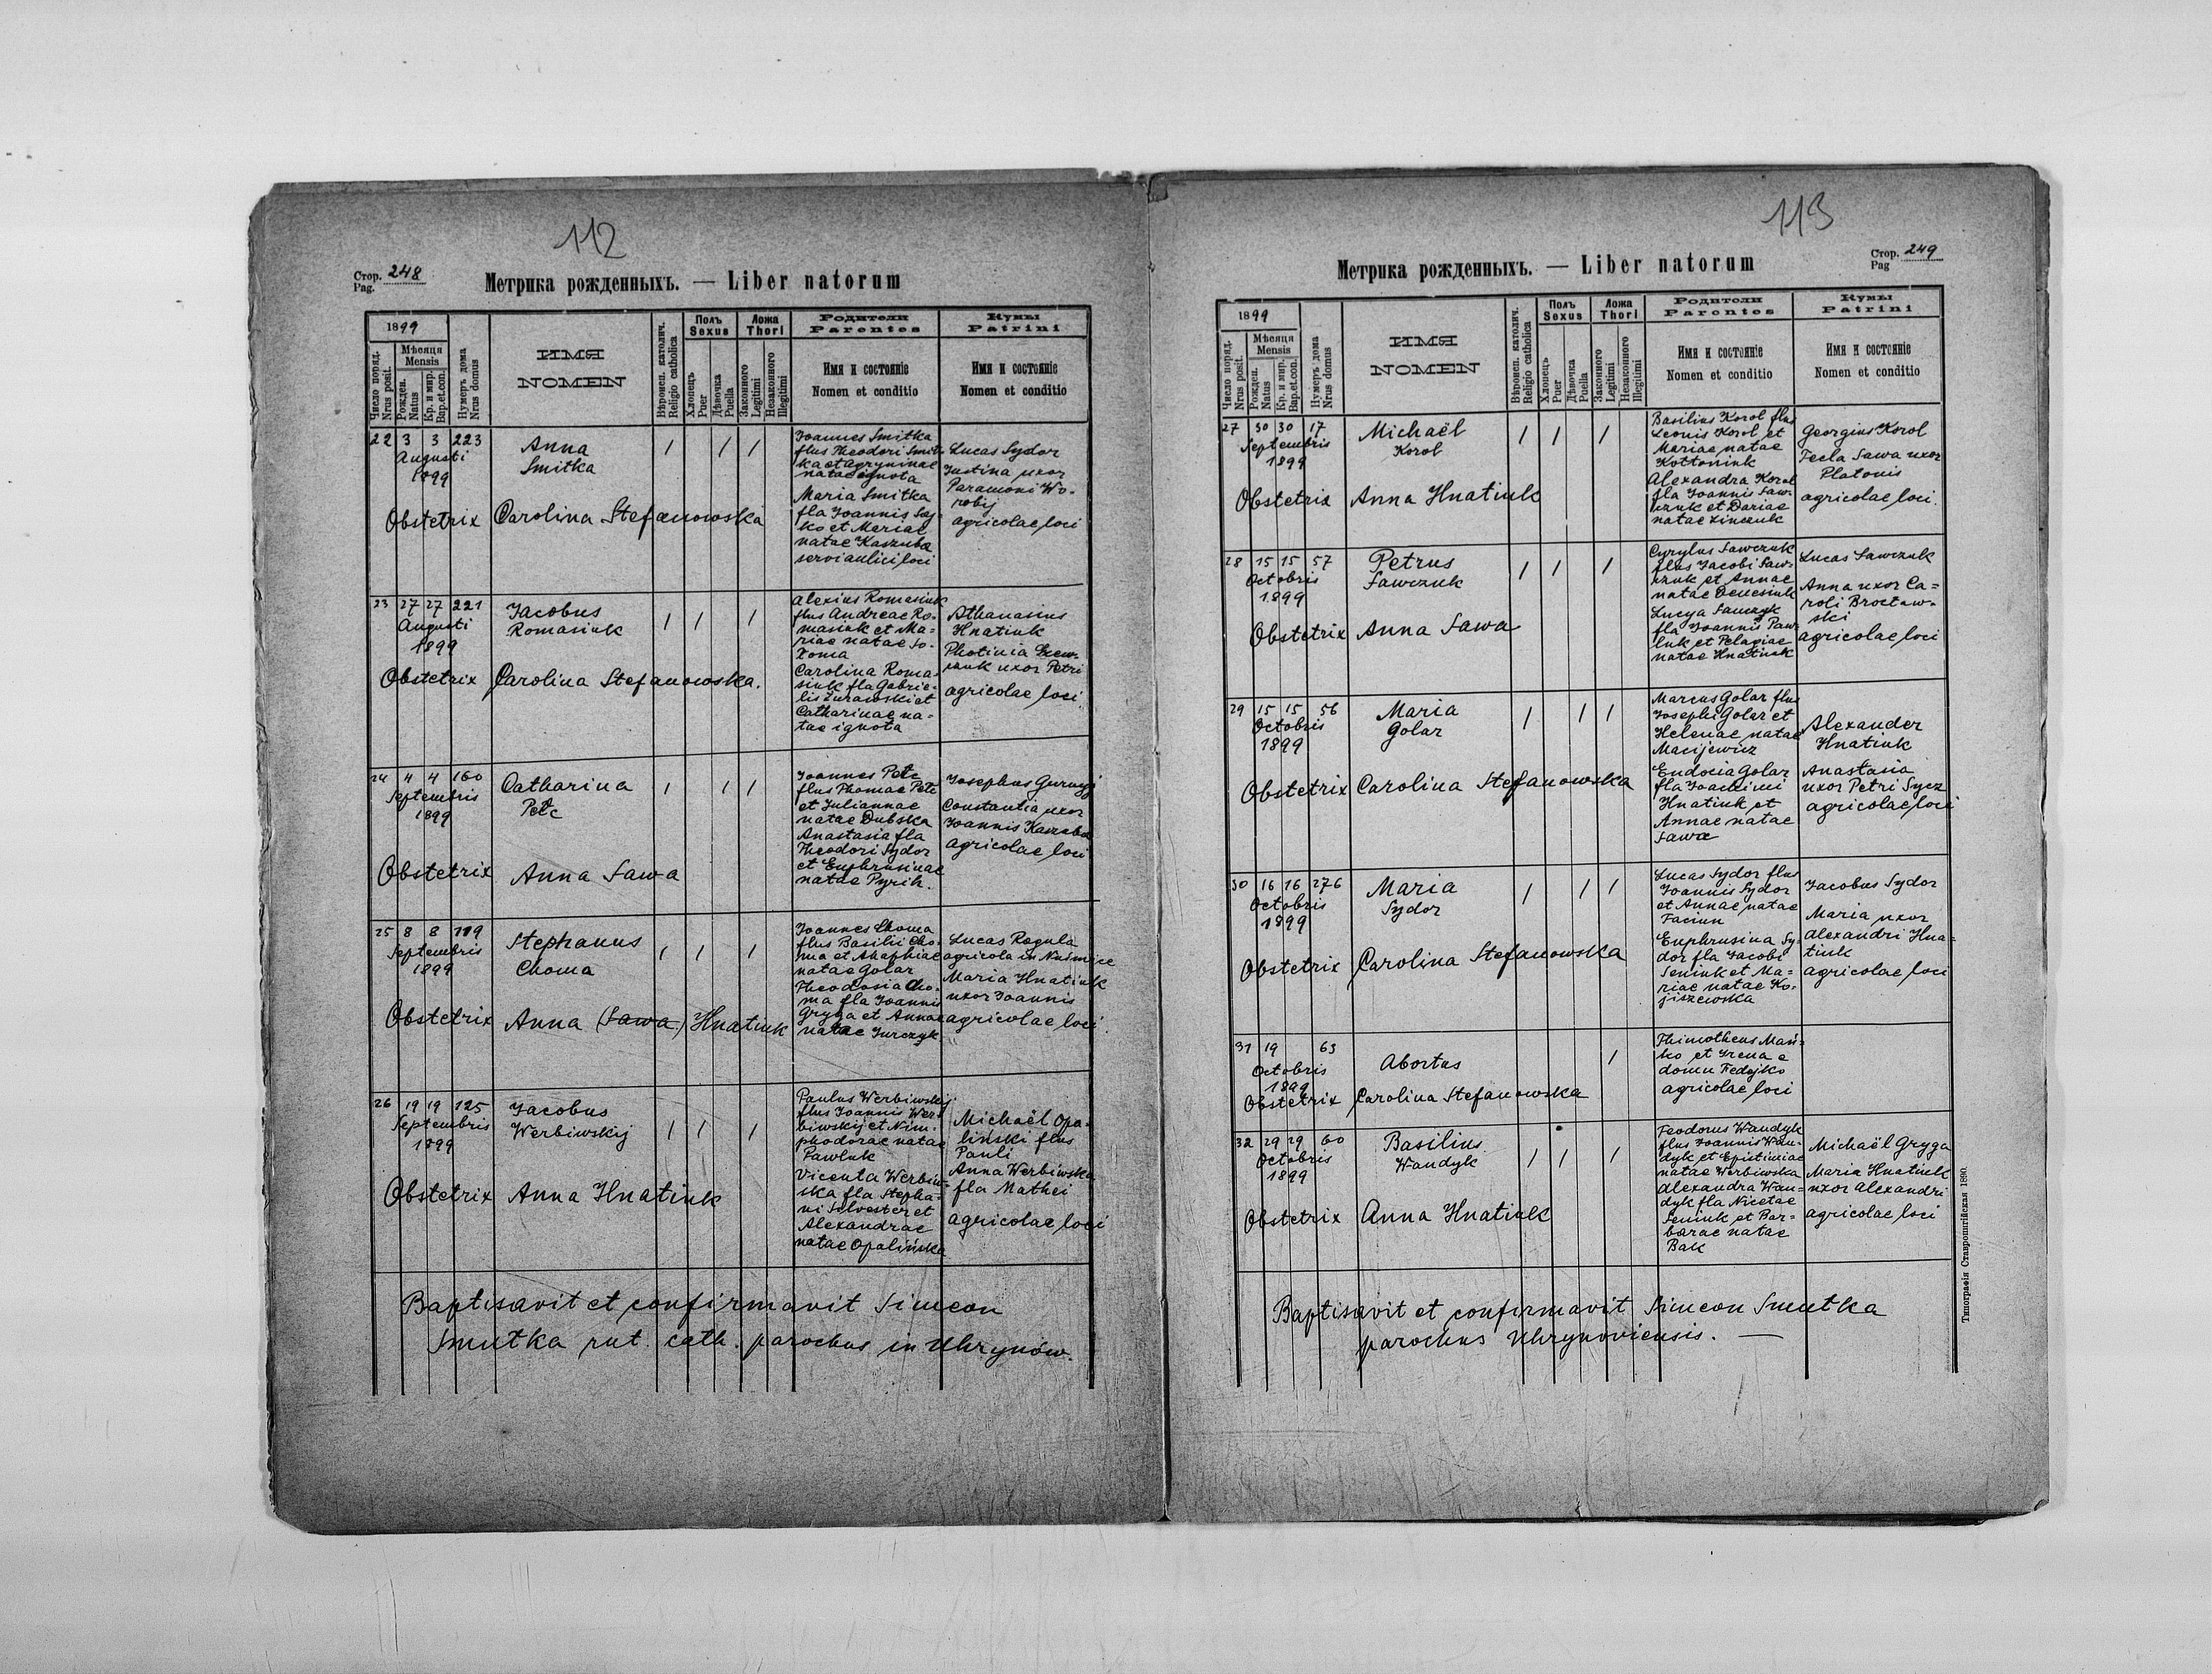 112
Стор. 248
Pag.
Метрика рожденныхъ. — Liber natorum
1899
Число поряд.
Nrus posit.
Мѣсяця
Mensis
Рожден.
Natus
Кр. и мир.
Bap.et.con.
Нумеръ дома
Nrus domus
ИМЯ
NOMEN
Вѣроисп. католич.
Religio catholica
Полъ
Sexus
Хлопець
Puer
Дѣвочка
Puella
Ложа
Thori
Законного
Legitimi
Незаконного
Illegitimi
Родители
Parentes
Имя и состояніе
Nomen et conditio
Кумы
Patrini
Имя и состояніе
Nomen et conditio
22 3 3 223
Augusti
1899
Anna
Smitka
/ / /
Joannes Smitka
flus Theodori Smit-
ka et Agrypinae
natae ignota
Maria Smitka
fla Joannis Saj-
ko et Mariae
natae Kaszuba
servi aulici loci
Lucas Sydor
Justina uxor
Paramoni Wo-
robij
agricolae loci
Obstetrix Carolina Stefanowska
23 27 27 221
Augusti
1899
Jacobus
Romasiuk
/ / /
Alexius Romasiuk
flus Andreae Ro-
masiuk et Ma=
riae natae So-
roma
Carolina Roma-
siuk fla Gabrie-
lis Żurawski et
Catharinae na-
tae ignota
Athanasius
Hnatiuk
Photinia
uxor Petri
agricolae loci.
Obstetrix Carolina Stefanowska.
24 4 4 160
Septembris
1899
Catharina
Petc
/ / /
Joannes Petc
flus Thomae Petc
et Juliannae
natae Dubska
Anastasia fla
Theodori Sydor
et Euphrasinae
natae Pyrih.
Josephus
Constantia uxor
Joannis Kaszuba
agricolae loci
Obstetrix Anna Sawa
25 8 8 119
Septembris
1899
Stephanus
Choma
/ / /
Joannes Choma
flus Basilii Cho-
ma et Ahaphiae
natae Golar
Theodosia Cho-
ma fla Joannis
Gryga et Annae
natae Jurczyk.
Lucas Rogula
agricola in
Maria Hnatiuk
uxor Joannis
agricolae loci.
Obstetrix Anna (Sawa) Hnatiuk
26 19 19 125
Septembris
1899
Jacobus
Werbiwskij
/ / /
Paulus Werbiwskij
flus Joannis Wer-
biwskij et Nim-
phodorae natae
Pawluk
Vicenta Werbiw-
ska fla Stepha-
ni Silvester et
Alexandrae
natae Opalińska
Michaël Opa-
liński flus
Pauli
Anna Werbiwska
fla Mathei
agricolae loci
Obstetrix Anna Hnatiuk
Baptisavit et confirmavit Simeon
Smutka rut. cath. parochus in Uhrynów.
113
Стор. 249
Pag
Метрика рожденныхъ. — Liber natorum
1899
Число поряд.
Nrus posit.
Мѣсяця
Mensis
Рожден.
Natus
Кр. и мир.
Bap.et.con.
Нумеръ дома
Nrus domus
ИМЯ
NOMEN
Вѣроисп. католич.
Religio catholica
Полъ
Sexus
Хлопець
Puer
Дѣвочка
Puella
Ложа
Thori
Законного
Legitimi
Незаконного
Illegitimi
Родители
Parentes
Имя и состояніе
Nomen et conditio
Кумы
Patrini
Имя и состояніе
Nomen et conditio
27 30 30 17
Septembris
1899
Michaël
Korol
/ / /
Basilius Korol flus
Leonis Korol et
Mariae natae
Kottoniuk
Alexandra Korol
fla Joannis Saw-
czuk et Dariae
natae Zinczuk
Georgius Korol
Tecla Sawa uxor
Platonis
agricolae loci.
Obstetrix Anna Hnatiuk
28 15 15 57
Octobris
1899
Petrus
Sawczuk
/ / /
Cyrylus Sawczuk
flus Jacobi Saw-
czuk et Annae
natae Denesiuk
Lucya Sawczyk
fla Joannis Paw-
luk et Pelagiae
natae Hnatiuk
Lucas Sawczuk
Anna uxor Ca=
roli Brocław-
ski
agricolae loci
Obstetrix Anna Sawa
29 15 15 56
Octobris
1899
Maria
Golar
/ / /
Marcus Golar flus
Josephi Golar et
Helenae natae
Macijewicz
Eudocia Golar
fla Joachimi
Hnatiuk et
Annae natae
Sawa
Alexander
Hnatiuk
Anastasia
uxor Petri Sycz
agricolae loci
Obstetrix Carolina Stefanowska
30 16 16 276
Octobris
1899
Maria
Sydor
/ / /
Lucas Sydor flus
Joannis Sydor
et Annae natae
Faciun
Euphrusina Sy-
dor fla Jacobi
Seniuk et Ma=
riae natae Ko-
jiszewska
Jacobus Sydor
Maria uxor
Alexandri Hna=
tiuk
agricolae loci
Obstetrix Carolina Stefanowska
31 19 63
Octobris
1899
Abortus
/
Thimotheus Mań=
ko et Irena e
domu Fedejko
agricolae loci
Obstetrix Carolina Stefanowska
32 29 29 60
Octobris
1899
Basilius
Wandyk
/ / /
Feodorus Wandyk
flus Joannis Wan-
dyk et Epistimiae
natae Werbiwska
Alexandra Wan=
dyk fla Nicetae
Seniuk et Bar=
barae natae
Bak
Michaël Gryga
Maria Hnatiuk
uxor Alexandri
agricolae loci
Obstetrix Anna Hnatiuk
Baptisavit et confirmavit Simeon Smutka
parochus Uhrynoviensis. —
Типографія Ставропигійская 1890.